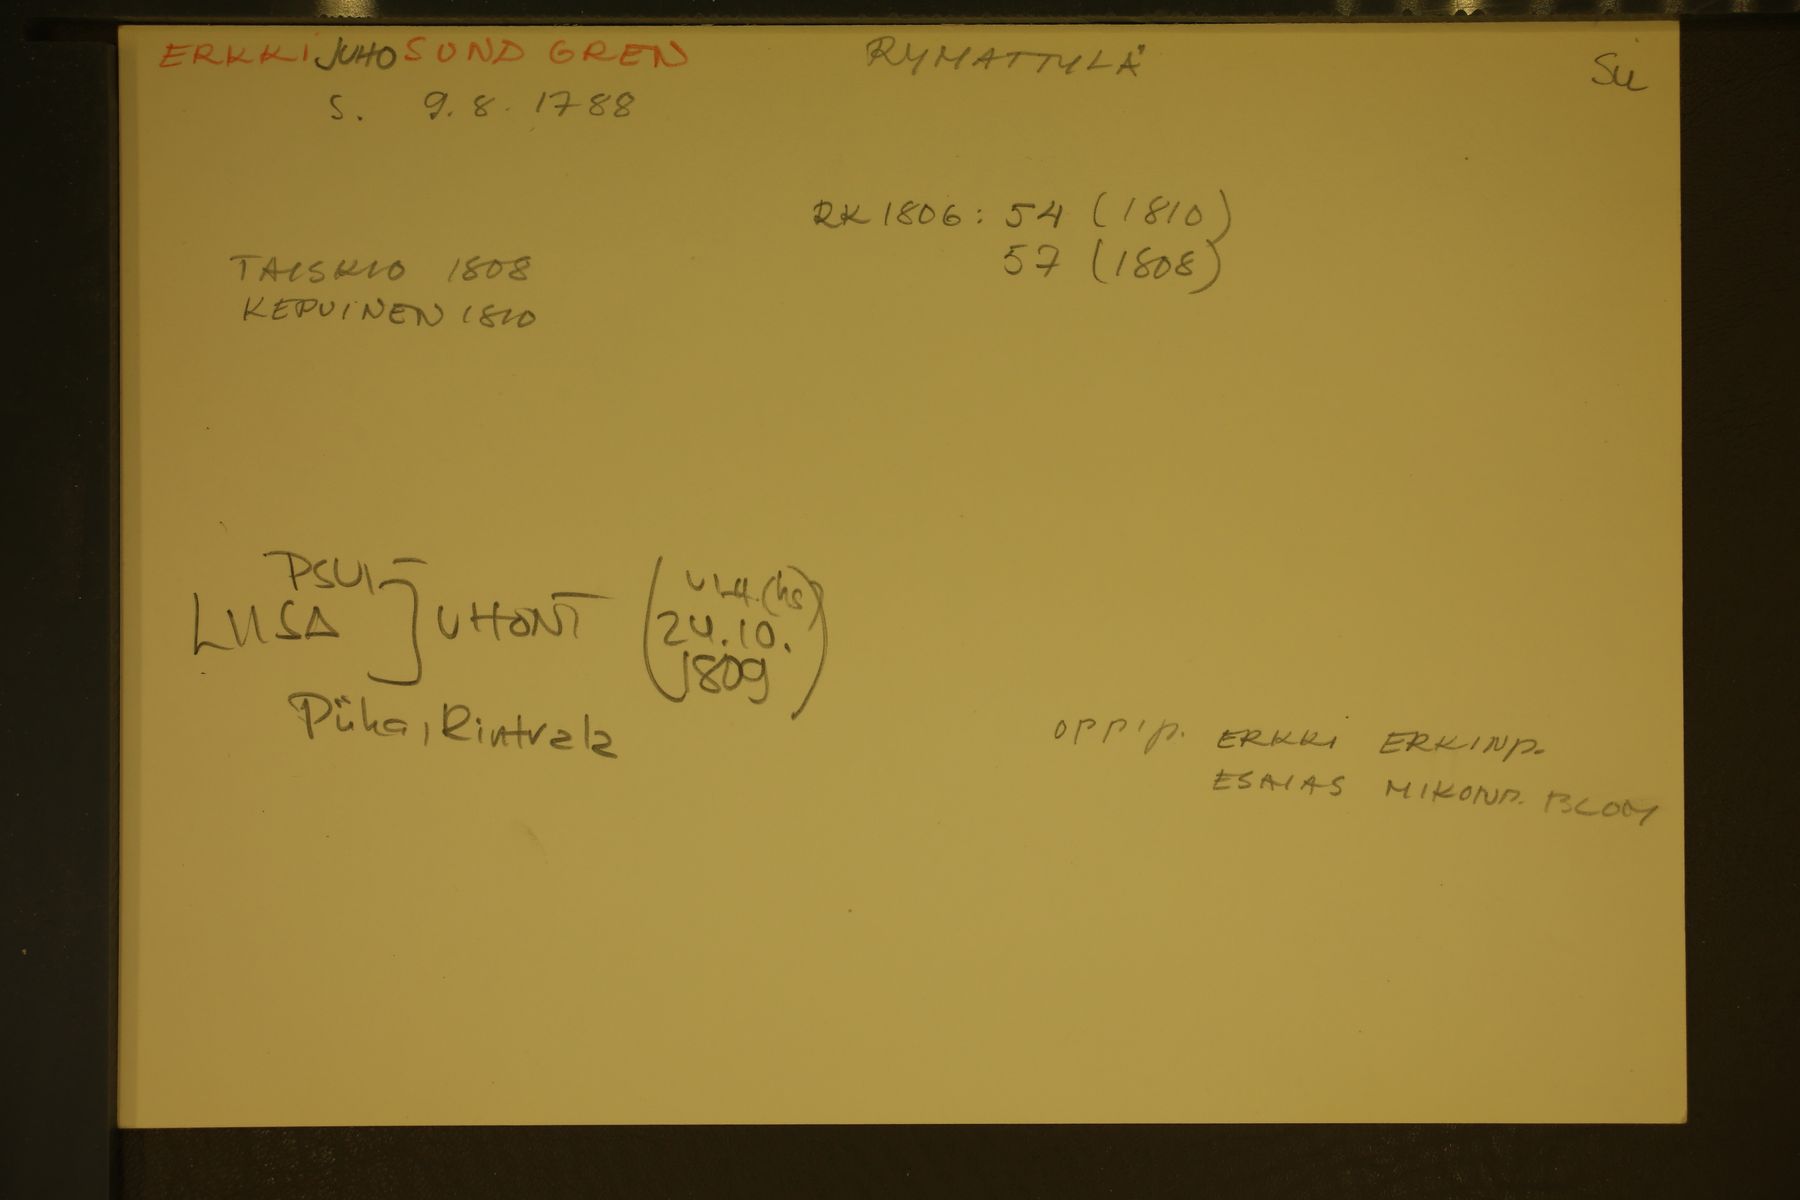 ERKKI JUHO SUNDGREN RYMÄTTYLÄ Su
S. 9.8.1788
RK 1806: 54 (1810)
57 (1808)
TAISKIO 1808
KEPUINEN 1810
LIISA JUHONT (
24.10.
1809)
Piiha, Rintrala
OPPIP. ERKKI ERKINP.
ESAIAS MIKONP. BLOM